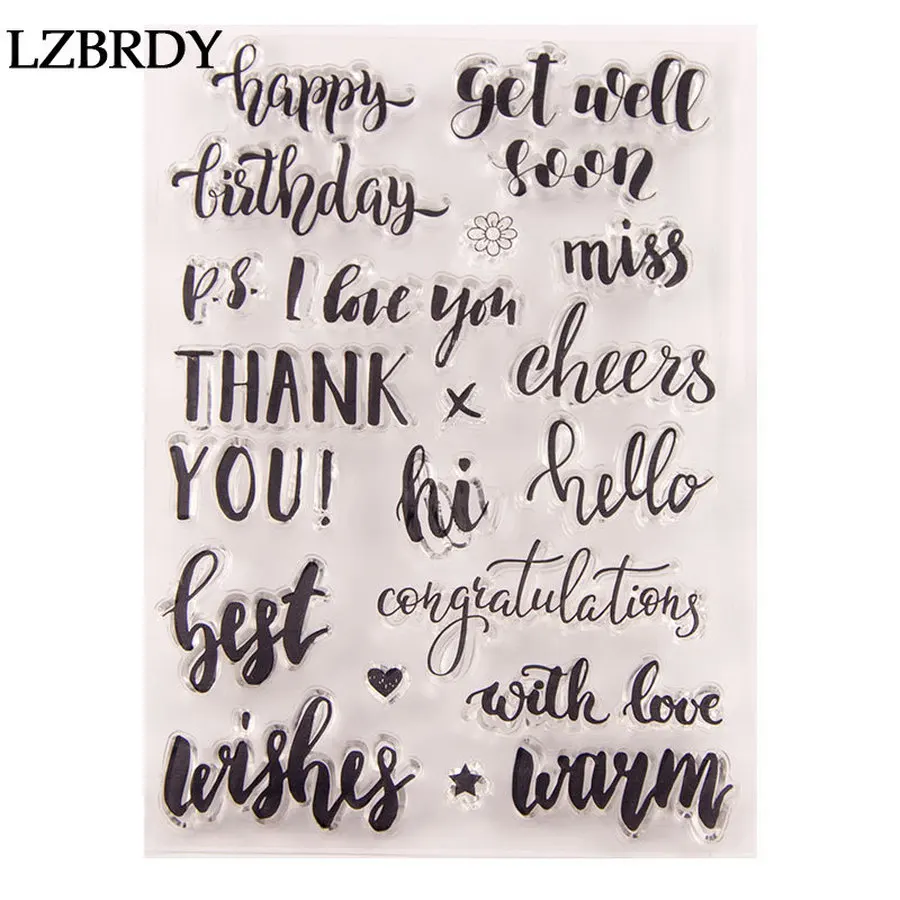 LZBRDY
happy
birthday
get well
soon
miss
p.s. I love you
THANK
YOU!
x
cheers
hi
hello
best
wishes
congratulations
with love
warm